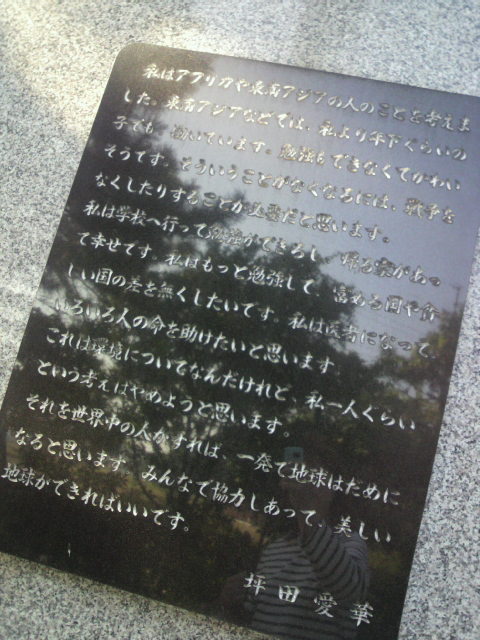 私はアフリカや東南アジアの人のことを考えま
した。東南アジアなどでは、私より年下ぐらいの
子でも、働いています。勉強もできなくてかわい
そうです。そういうことがなくなるには、戦争を
なくしたりすることが必要だと思います。
私は学校へ行って勉強ができるし、帰る家があっ
て幸せです。私はもっと勉強して、富める国や貧
しい国の差を無くしたいです。私は医者になって、
いろいろ人の命を助けたいと思います。
これは環境についてなんだけれど、私一人ぐらい
という考えはやめようと思います。
それを世界中の人がすれば、一発で地球はだめに
なると思います。みんなで協力しあって、美しい
地球ができればいいです。
坪田愛華